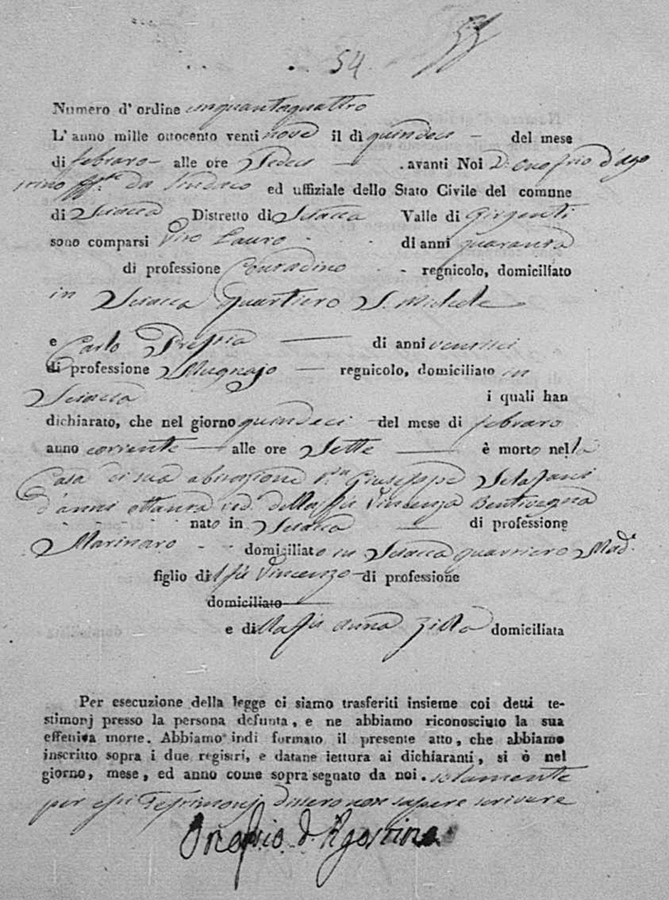 54
Numero d' ordine cinquantaquattro
L' anno mille ottocento ventinove il dì quindeci del mese
di febraro alle ore Sedeci avanti Noi D. Onofrio d'Ago
stino da Sindaco ed uffiziale dello Stato Civile del comune
di Sciacca Distretto di Sciacca Valle di Girgenti
sono comparsi Vito Lauro di anni quaranta
di professione Contadino regnicolo, domiciliato
in Sciacca quartiero S. Michele
e Carlo di anni
di professione Mugnajo regnicolo, domiciliato in
Sciacca i quali han
dichiarato, che nel giorno quindeci del mese di febraro
anno corrente alle ore Sette è morto nella
Casa di sua abitazione Giuseppe
d'anni ottanta ved. della fu Vincenza Bentivegna
nato in Sciacca di professione
Marinaro domiciliato in Sciacca quartiero Mad.ª
figlio del fu Vincenzo di professione
domiciliato
e della fu Anna Zilla domiciliata
Per esecuzione della legge ci siamo trasferiti insieme coi detti te-
stimonj presso la persona defunta, e ne abbiamo riconosciuto la sua
effeniva morte. Abbiamo indi formato il presente atto, che abbiamo
inscritto sopra i due registri, e datane lettura ai dichiaranti, si è nel
giorno, mese, ed anno come sopra segnato da noi. solamente
per essi Testimonj dissero non sapere scrivere
Onofrio d'Agostino